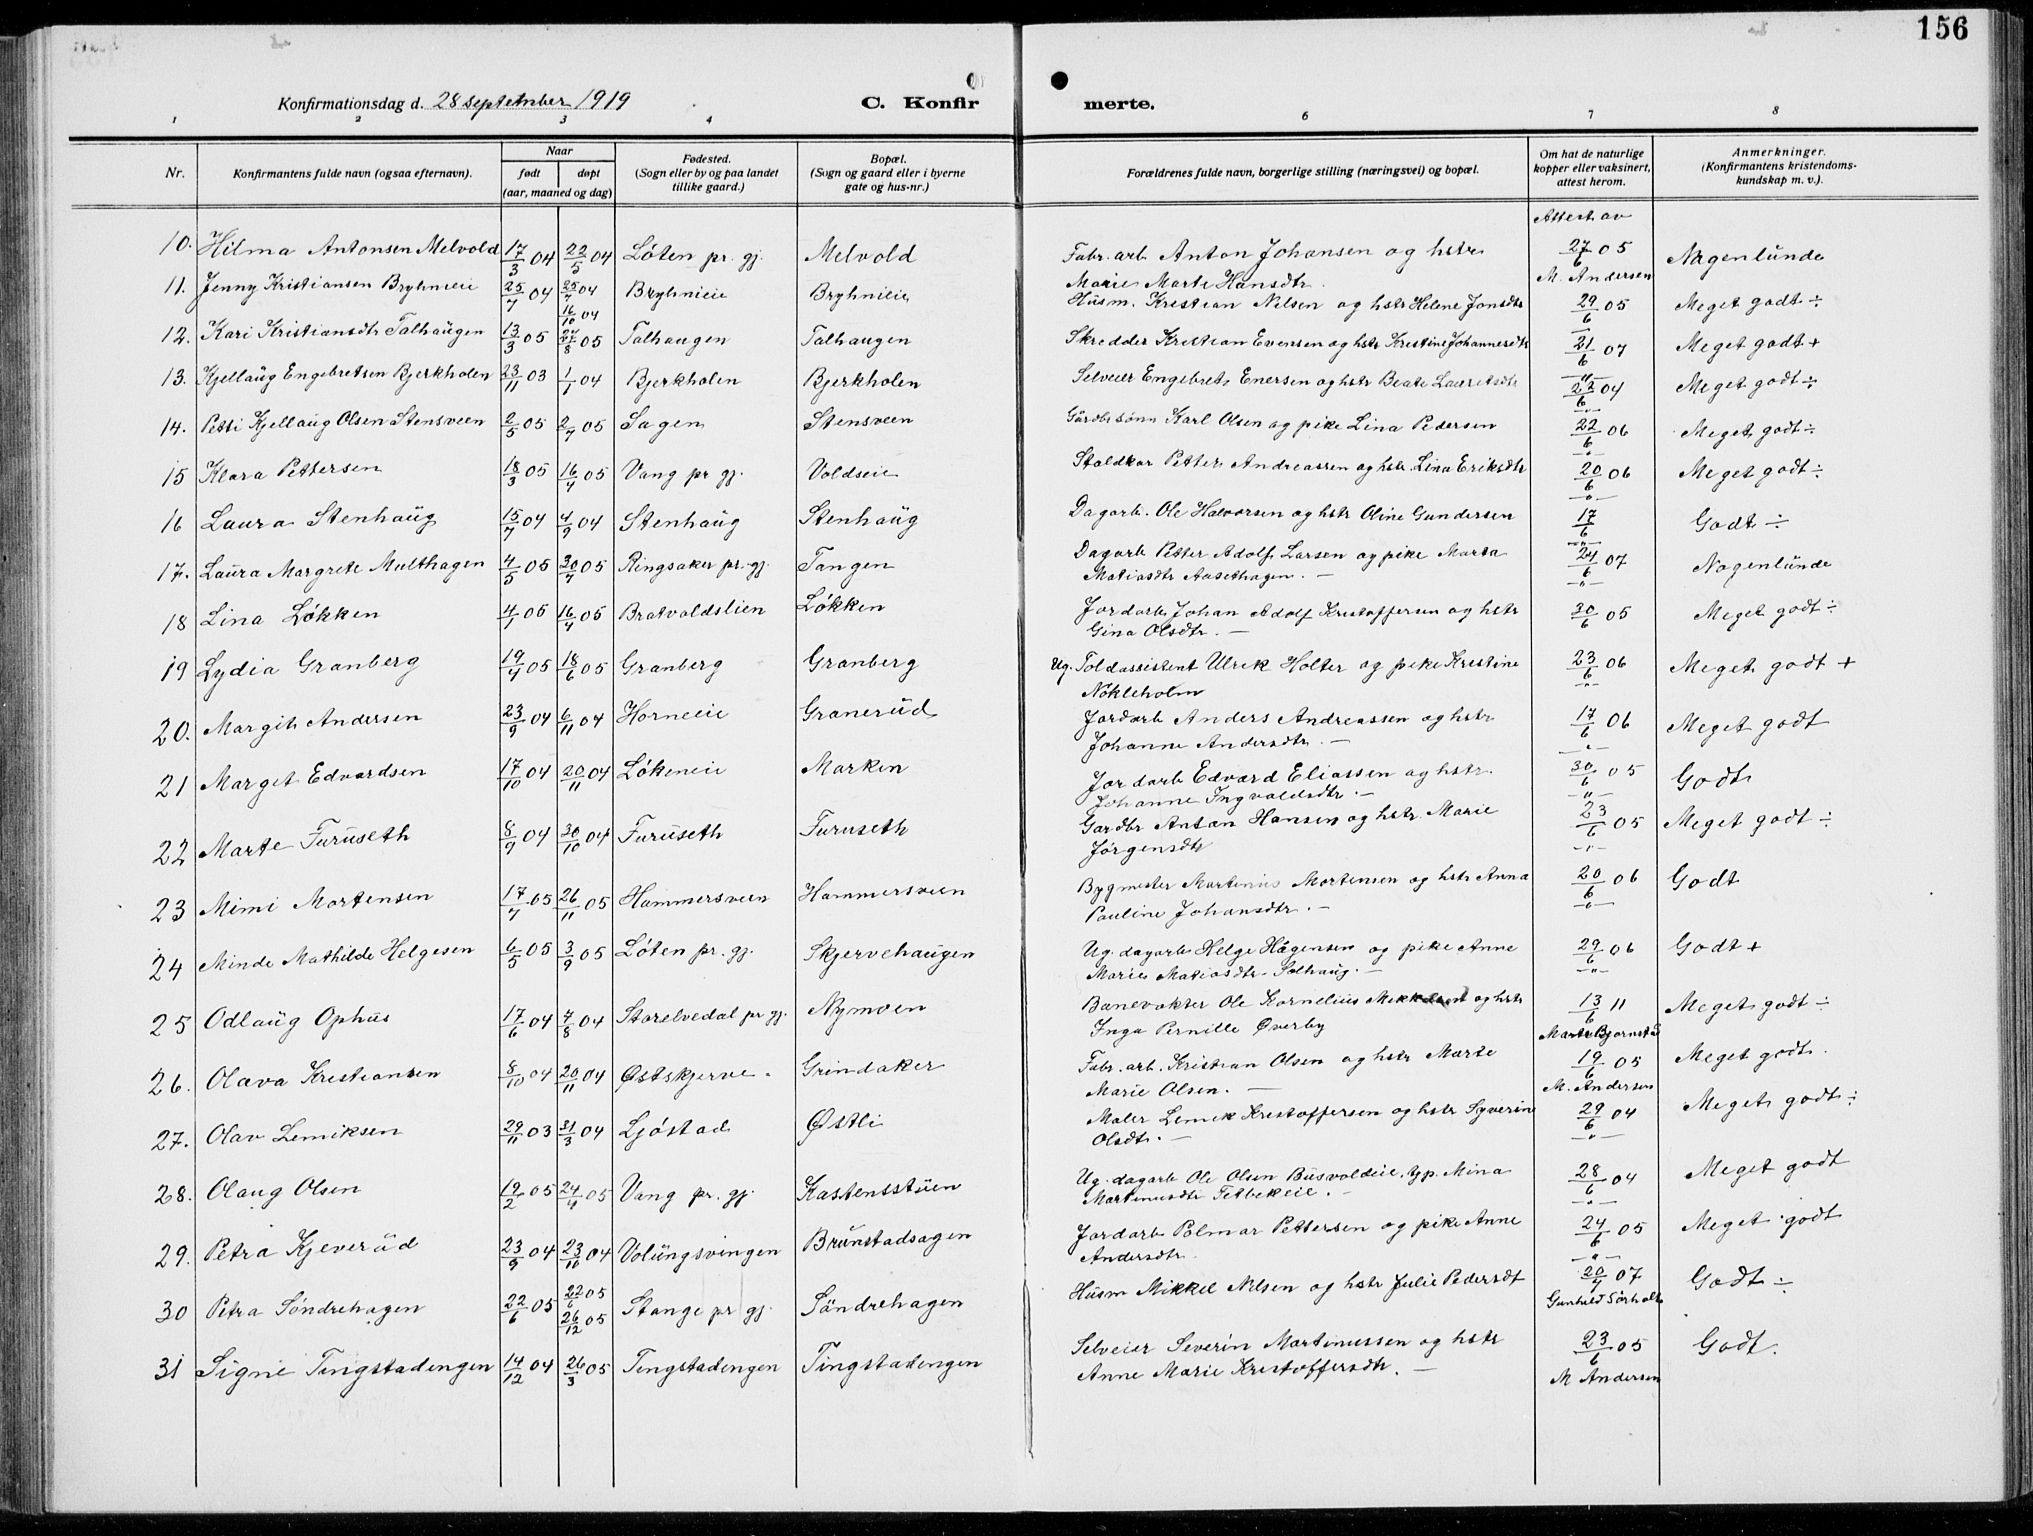 156
Konfirmationsdag d. 28 september 1919
C. Konfirmerte.
1 2 3 4 6 7 8
Nr.
Konfirmantens fulde navn (ogsaa efternavn).
Naar
født døpt
(aar, maaned og dag)
Fødested.
(Sogn eller by og paa landet
tillike gaard.)
Bopæl.
(Sogn og gaard eller i byerne
gate og hus-nr.)
Forældrenes fulde navn, borgerlige stilling (næringsvei) og bopæl.
Om hat de naturlige
kopper eller vaksinert,
attest herom.
Anmerkninger.
(Konfirmantens kristendoms-
kundskap m. v.).
Attest av
10. Hilma Antonsen Melvold 17/3 04 22/5 04 Løten pr. gj. Melvold Fabr. arb. Anton Johansen og hstr 27/6 05 Nogenlunde
Marie Marte Hansdtr. M. Andersen
11. Jenny Kristiansen Bryhnieie 25/7 04 25/7 04 Bryhnieie Bryhnieie Husm. Kristian Nilsen og hstr Helene Jonsdtr 29/6 05 Meget godt ÷
16/10 04
12. Kari Kristiansdtr Talhaugen 13/3 05 27/8 05 Talhaugen Talhaugen Skredder Kristian Evensen og hstr Kristine Johannesdtr 21/6 07 Meget godt +
13. Kjellaug Engebretsen Bjerkholen 23/11 03 1/1 04 Bjerkholen Bjerkholen Selveier Engebret Enersen og hstr Beate Lauritsdtr 22/6 04 Meget godt ÷
14. Petti Kjellaug Olsen Stensveen 2/5 05 2/7 05 Sagen Stensveen Gårdbr sønn Karl Olsen og pike Lina Pedersen 22/6 06 Meget godt ÷
15 Klara Pettersen 18/3 05 16/4 05 Vang pr gj. Voldseie Staldkar Petter Andreassen og hstr. Lina Eriksdtr 20/6 06 Meget godt ÷
16 Laura Stenhaug 15/7 04 4/9 04 Stenhaug Stenhaug Dagarb. Ole Halvorsen og hstr Oline Gundersen 17/6 Godt ÷
17. Laura Margrete Multhagen 4/5 05 30/7 05 Ringsaker pr. gj. Tangen Dagarb Petter Adolf Larsen og pike Marta 24/6 07 Nogenlunde
Matiasdtr Aasethagen. —
18 Lina Løkken 4/1 05 16/4 05 Bratvoldslien Løkken Jordarb Johan Adolf Kristoffersen og hstr 30/6 05 Meget godt ÷
Gina Olsdtr. —
19 Lydia Granberg 19/4 05 18/6 05 Granberg Granberg Ug. Toldassistent Ulrik Holter og pike Kristine 23/6 06 Meget godt +
Nökleholm
20. Margit Andersen 23/9 04 6/11 04 Horneeie Granerud Jordarb Anders Andreassen og hstr 17/6 06 Meget godt
Johanne Andersdtr. —
21 Marget Edvardsen 17/10 04 20/11 04 Løkeneie Marken Jordarb Edvard Eliassen og hstr. 30/6 05 Godt
Johanne Ingvaldsdtr. —
22 Marte Furuseth 8/9 04 30/10 04 Furuseth Furuseth Gardbr Anton Hansen og hstr Marie 23/6 05 Meget godt ÷
Jørgensdtr
23 Mimi Mortensen 17/7 05 26/11 05 Hammersveen Hammersveen Bygmester Martinius Mortensen og hstr Anna 20/6 06 Godt
Pauline Johansdtr. —
24 Minde Mathilde Helgesen 6/5 05 3/9 05 Løten pr. gj. Skjervehaugen Ug. dagarb Helge Hågensen og pike Anne 29/6 06 Godt +
Marie Matiasdtr Solhaug. —
25 Odlaug Ophus 17/6 04 7/8 04 Storelvedal pr gj. Nymoen Banevokter Ole Kornelius og hstr 13/6 11 Meget godt ÷
Inga Pernille Øverby Marte Bjørnstad
26. Olava Kristiansen 8/10 04 20/11 04 Østskjerve. Grindaker Fabr. arb. Kristian Olsen og hstr Marte 19/6 05 Meget godt.
Marie Olsen. — M. Andersen
27. Olav Lemiksen 29/11 03 31/3 04 Ljøstad Østli Maler Lemik Kristoffersen og hstr Syverine 29/6 04 Meget godt ÷
Olsdtr. —
28. Olaug Olsen 19/2 05 24/4 05 Vang pr. gj. Kastensstuen Ug. dagarb Ole Olsen Busvoldeie, og p. Mina 28/6 04 Meget godt
Martinusdtr
29. Petra Kjeverud 23/9 04 23/10 04 Volungsvingen Brunstadsagen Jordarb Palmar Pettersen og pike Anne 24/6 05 Meget godt
Andersdtr.
30 Petra Søndrehagen 22/6 05 22/6 05 Stange pr gj. Søndrehagen Husm Mikkel Nilsen og hstr Julie Pedersdt 20/4 07 Godt ÷
26/12 05 Gunhild Sørholte
31 Signe Tingstadengen 14/12 04 26/3 05 Tingstadengen Tingstadengen Selveier Severin Martinussen og hstr 23/6 05 Godt.
Anne Marie Kristoffersdtr. — M Andersen